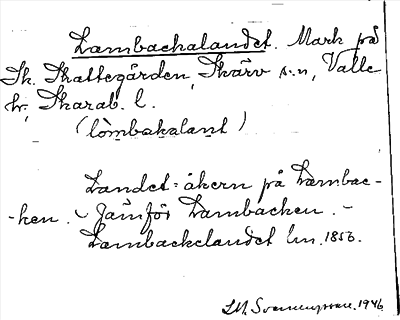 Lambackalandet. Mark på
Sk. Skattegården, Skärv s:n, Valle
hd, Skarab. l.
(lòmbakalant)
Landet = åkern på Lambac-
-ken. - Jämför Lambacken. -
Lambackelandet Lm. 1856.
1946